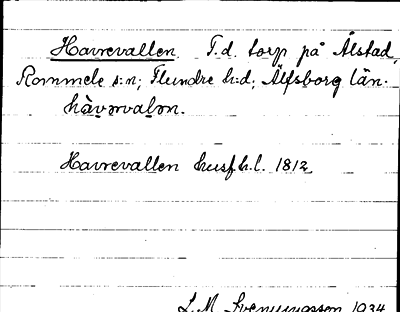 Havrevallen. F.d. torp på Ålstad,
Rommele s:n; Flundre h:d; Älfsborg län.
hàvərvalən.
Havrevallen husf.h.l. 1812
L.M. Svenungsson 1934